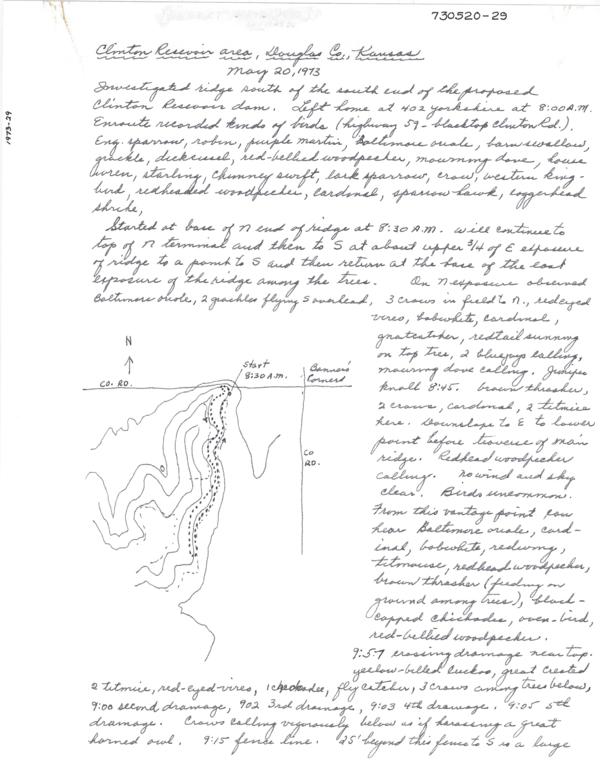 730520-29
1973-29
Clinton Resevoir area, Douglas Co., Kansas
May 20, 1973
Investigated ridge south of the south end of the proposed
Clinton Resevoir dam. Left home at 402 yorkshire at 8:00 A.M.
Enroute recorded kinds of birds (highway 59 - blacktop Clinton Rd.).
Eng. sparrow, robin, purple martin, Baltimore oriole, barn swallow,
grackle, dickcissel, red-bellied woodpecker, mourning dove, house
wren, starling, chimney swift, lark sparrow, crow, western king-
bird, redheaded woodpecker, cardinal, sparrow hawk, loggerhead
shrike,
Started at base of N end of ridge at 8:30 A.M. will continue to
top of N terminal and then to S at about upper 3/4 of E exposure
of ridge to a point to S and then return at the base of the east
exposure of the ridge among the trees. On N exposure observed
Baltimore oriole, 2 grackles flying S overhead, 3 crows in field to N., redeyed
vireo, bobwhite, cardinal,
gnatcatcher, redtail sunning
on top tree, 2 bluejays calling,
mourning dove calling. Juniper
knoll 8:45. brown thrasher,
2 crows, cardinal, 2 titmice
here. Downslope to E to lower
point before traverse of main
ridge. Redhead woodpecker
calling. no wind and sky
clear. Birds uncommon.
From this vantage point can
hear Baltimore oriole, card-
inal, bobwhite, redwing,
titmouse, redhead woodpecker,
brown thrasher (feeding on
ground among trees), black-
capped chickadee, oven-bird,
red-bellied woodpecker.
N
CO. RD.
Start
8:30 A.M.
Corners
CO
RD.
8:57 crossing drainage near top.
yellow-billed cuckoo, great crested
2 titmice, red-eyed-vireo, 1 chickadee, flycatcher, 3 crows among trees below,
9:00 second drainage, 902 3rd drainage, 9:03 4th drainage. 9:05 5th
drainage. Crows calling vigorously below as if harassing a great
horned owl. 9:15 fence line. 25' beyond this fence to S is a large